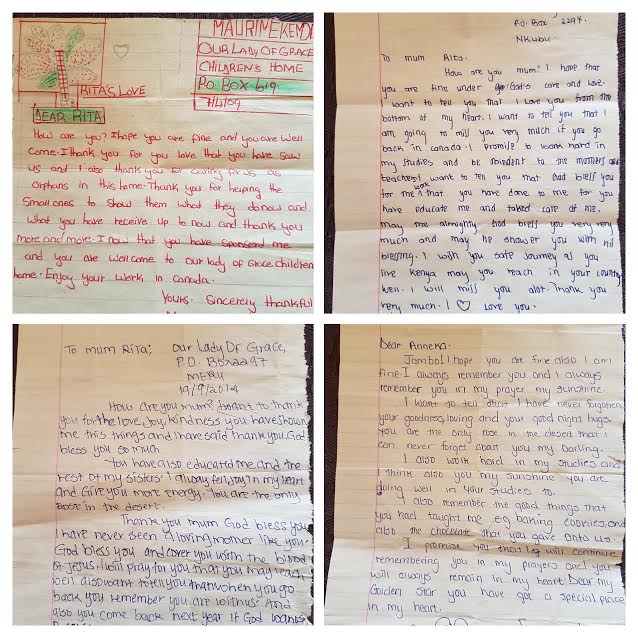 MAURINE KENDI
OUR LADY OF GRACE
CHILDREN'S HOME
P.O. BOX 619
7/4/09
RITA'S LOVE
DEAR RITA
How are you? I hope you are fine and you are well
come. I thank you for you love that you have saw
us and I also thank you for caring for us as
orphans in this home. Thank you for helping the
Small ones to show them what they do now and
what you have receive up to now and thank you
more and more. I now that you have sponserd me
and you are wellcome to our lady of Grace Children
home. Enjoy your work in Canada.
Yours. Sincerely thankful
P.O. Box 2294.
Nkubu.
To mum Rita.
How are you mum? I hope that
you are fine under God's care and love.
I want to tell you that I love you from the
bottom of my heart. I want to tell you that I
am going to miss you very much if you go
back in canada. I promise to work hard in
my studies and be obedient to the mothers and
teachers. I want to tell you that God bless you
for the work that you have done to me for you
have educate me and taked care of me.
may the almighty God bless you very very
much and may he shower you with his
blessing. I wish you safe journey as you
live Kenya may you reach in your country
well. I will miss you alot. Thank you
very much. I Love you.
To mum Rita; Our Lady Of Grace,
P.O. Box 2297
MERU
19/9/2014
How are you mum? I want to thank
you for the love, Joy, kindness you have shown
me this things and I have said thank you. God
bless you so much
You have also educated me and the
rest of my sisters. I always feel Joy in my heart
and Give you more energy. You are the only
rose in the desert.
Thank you mum God bless you
I have never been a loving mother like you.
God bless you and cover you with the blood
of Jesus. I will pray for you that you may reach
well also want to tell you that when you go
back you remember you are with us. And
also you come back next year if God wants
Dear Anneka.
Jambo! I hope you are fine also I am
fine. I always remember you and I always
remember you in my prayer my sunshine.
I want to tell that I have never forgotten
your goodness, loving and your good night hugs.
you are the only rose in the desert that I
can never forget about you my Darling.
I also work hard in my studies and
I think also you my sunshine you are
doing well in your studies to.
I also remember the good things that
you had taught me eg baking cookies and
also the chocolate that you gave onto us.
I promise you that I will continue
remembering you in my prayers and you
will always remain in my heart. Dear my
Golden star you have got a special place
in my heart.